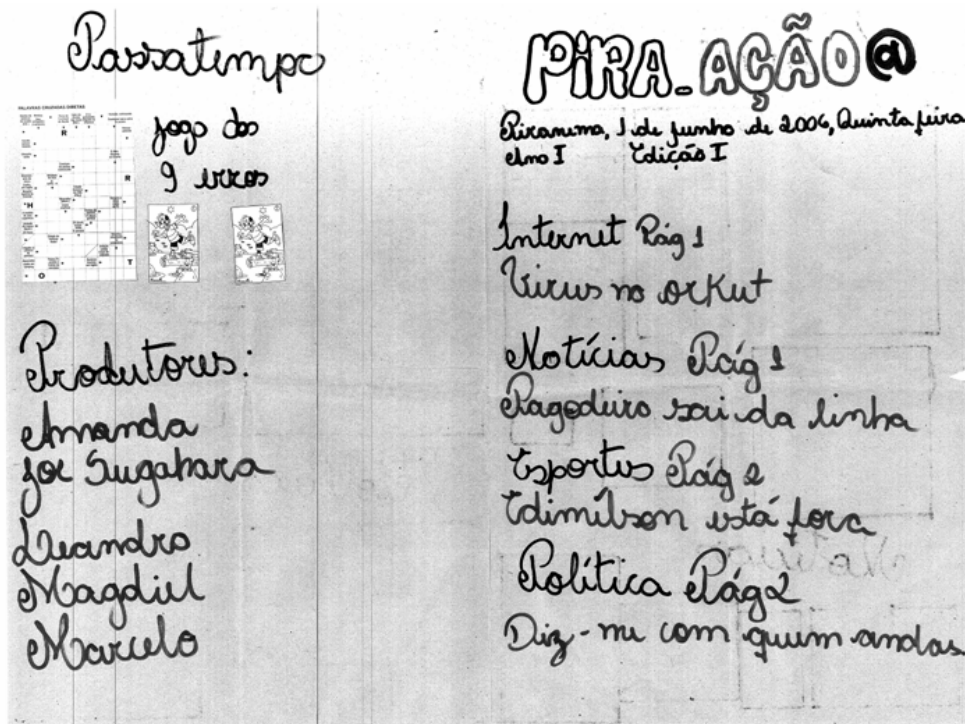 Passatempo
PALAVRAS CRUZADAS DIRETAS
jogo dos
9 erros
Produtores:
Amanda
Joe Sugahara
Leandro
Magdiel
Marcelo
PiRA_AÇÃO@
Piranema, 1 de junho de 2006, Quinta feira
Ano I Edição I
Internet Pág 1
Virus no orKut
Notícias Pág 1
Pagodeiro sai da linha
Esportes Pág 2
Edimílson está fora
Política Pág 2
Diz-me com quem andas